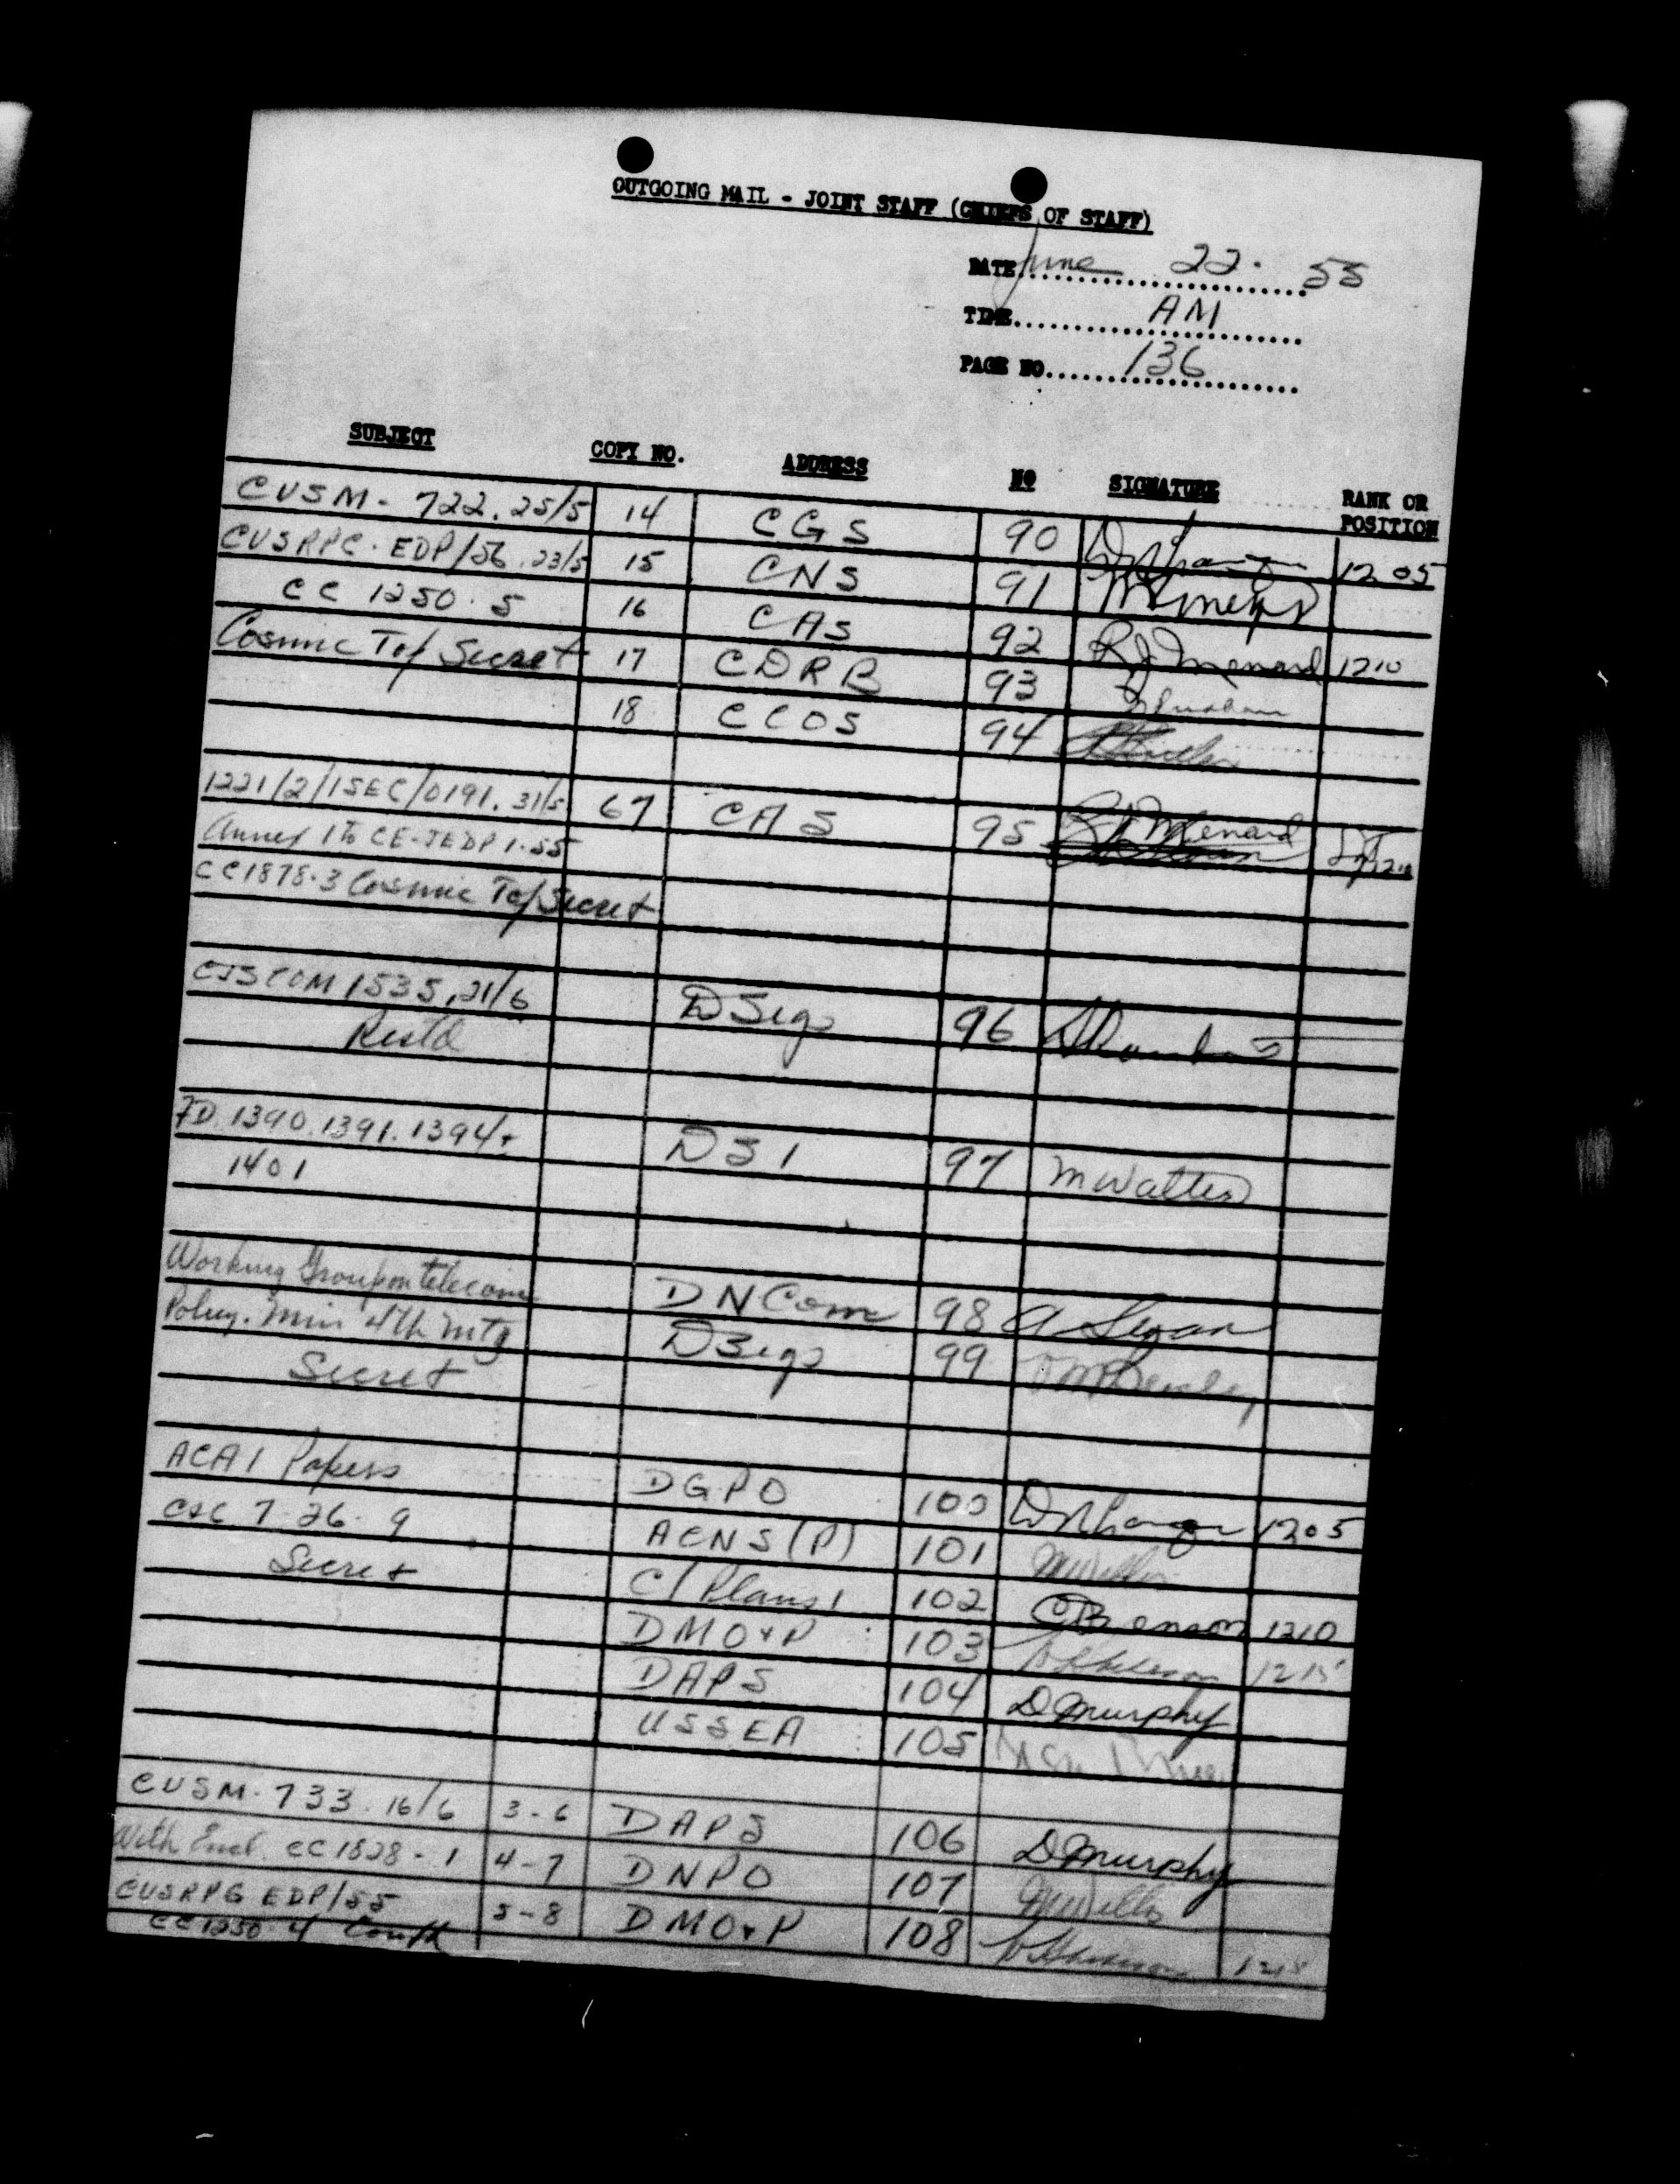 OUTGOING MAIL - JOINT STAFF (CHIEFS OF STAFF)
DATE June 22. 55
TIME AM
PAGE NO 136
SUBJECT COPY NO. ADDRESS NO SIGNATURE RANK OR POSITION
CUSM - 722. 25/5 14 CGS 90 1205
CUSRPC. EDP/56. 23/5 15 CNS 91
CC 1250. 5 16 CAS 92 RJ Menard 1210
Cosmic Top Secret 17 CDRB 93
18 CCOS 94
1221/2/1SEC/0191. 31/5 67 CAS 95 Menard
Annex 1 to CE-JEDP 1-55
CC1878.3 Cosmic Top Secret
CJSCOM 1535, 21/6 DSigs 96
Restd
FD. 1390. 1391. 1394 + DSI 97 M Watters
1401
Working Group on telecom DNCom 98
Policy. Min 4th mtg DSigs 99
Secret
ACAI Papers DGPO 100 1205
CSC 7-26-9 ACNS (P) 101
Secret C/Plans 1 102 C Benson 1210
DMO+P 103 1215
DAPS 104 D Murphy
USSEA 105
CUSM. 733. 16/6 3-6 DAPS 106 D Murphy
With Encl. CC 1828 - 1 4-7 DNPO 107
CUSRPG EDP/55 5-8 DMO+P 108 1215
CC1250 4